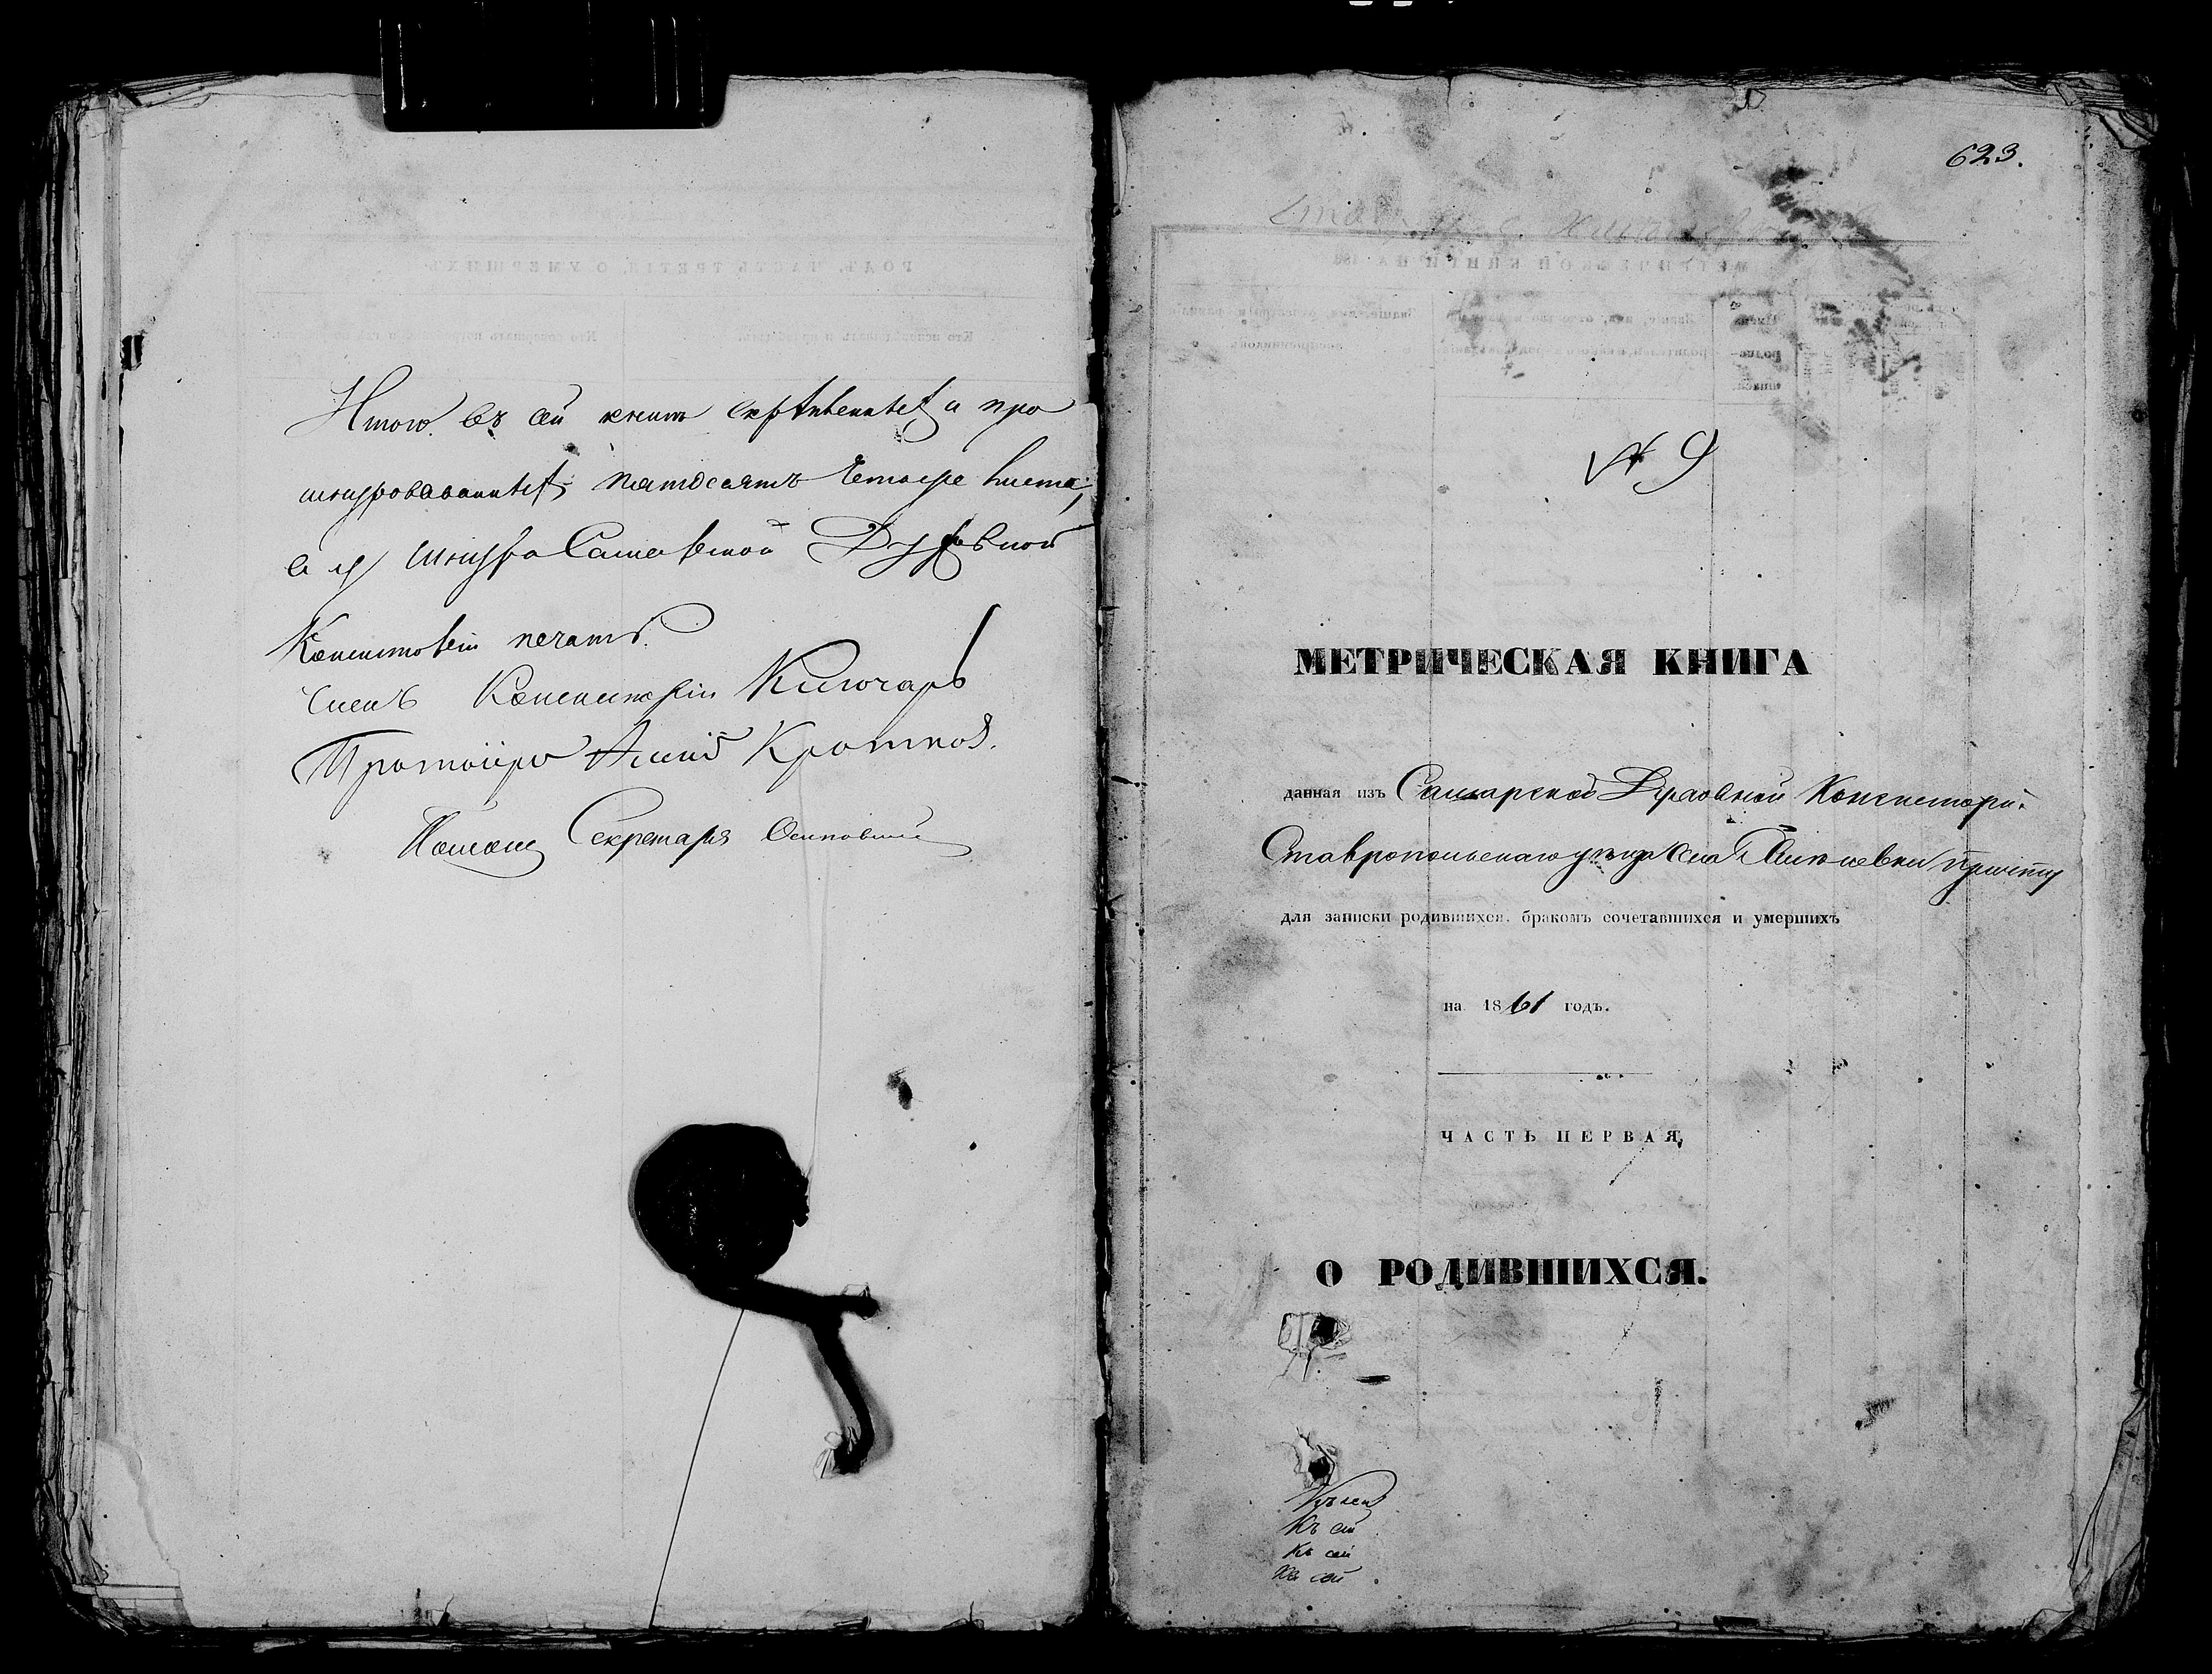 Итого въ сей книгѣ скрѣпленныхъ и про
шнурованныхъ пятдесятъ четыре листа,
а у шнура Самарской Духовной
Консисторіи печать.
Членъ Консисторіи Ключарь
Протоіерей Кротковъ.
Секретаря Осиповскій
623.
№ 9
МЕТРИЧЕСКАЯ КНИГА
данная изъ Самарской Духовной Консисторіи
Ставропольскаго уѣзда села причту
для записки родившихся, бракомъ сочетавшихся и умершихъ
на 1861 годъ.
ЧАСТЬ ПЕРВАЯ,
О РОДИВШИХСЯ.
Къ сей
Къ сей
Къ сей
Къ сей